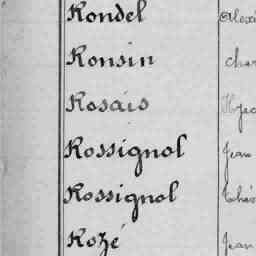 Rondel Alexi
Ronsin char
Rosais Hyac
Rossignol Jean
Rossignol
Rozé Jean